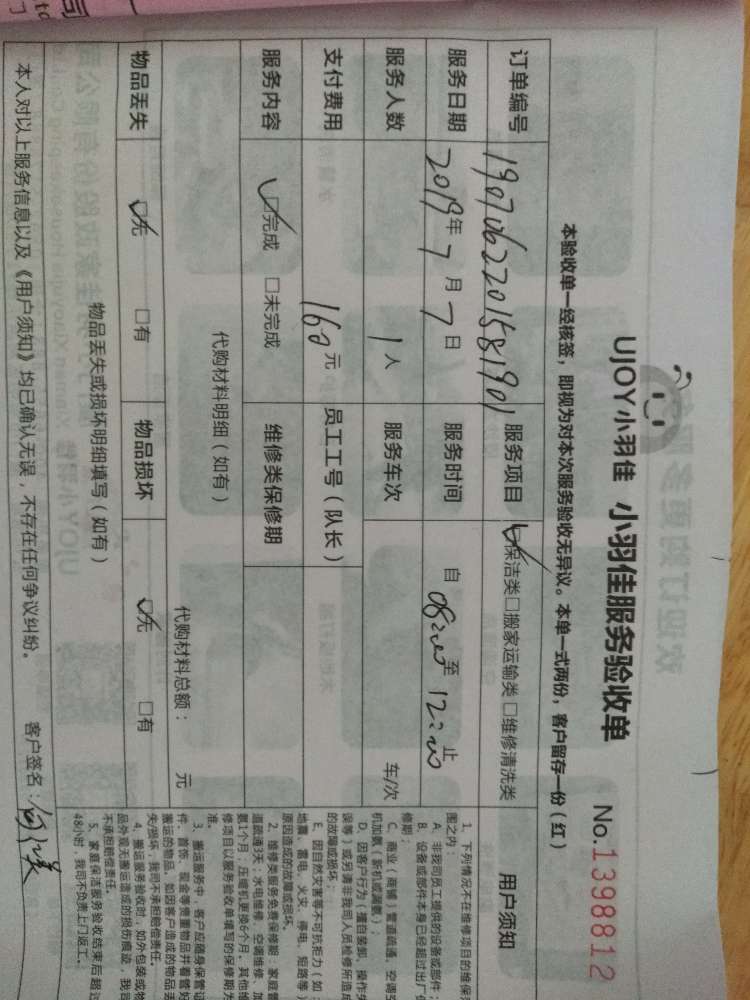 UJOY小羽佳 小羽佳服务验收单
No.1398812
本验收单一经核签，即视为对本次服务验收无异议。本单一式两份，客户留存一份（红）
订单编号 1907062201581901 服务项目 ☑保洁类□搬家运输类□维修清洗类
服务日期 2019年7月7日 服务时间 自 08:00 至 12:00 止
服务人数 1人 服务车次 车/次
支付费用 160元 员工工号（队长）
服务内容 ☑完成 □未完成 维修类保修期
代购材料明细（如有）
代购材料总额： 元
物品丢失 ☑无 □有 物品损坏 ☑无 □有
物品丢失或损坏明细填写（如有）
本人对以上服务信息以及《用户须知》均已确认无误，不存在任何争议纠纷。 客户签名：
用户须知
1、下列情况不在维修项目的维保
围之内：
A、非我司员工提供的设备或部件；
B、设备或部件本身已经超过出厂
修期；
C、商业（商铺）管道疏通、空调
机加氨（家机或漏氨）；
D、因客户行为（擅自装卸、操作失
误等）或另请非我司人员检修所造成
的故障或损坏；
E、因自然灾害等不可抗拒力（如：
地震、雷电、火灾、停电、短路等）
原因造成的故障或损坏。
2、维修类服务免费保修期：家庭管
道疏通3天；水电维修、空调维修、加
氨1个月；压缩机更换6个月。其他维
修项目以服务验收单填写的保修期为
准。
3、搬运服务中，客户应随身保管证
件、首饰、现金等贵重物品并看管好
搬运的物品，如因客户造成的物品丢
失/损坏，我司不承担赔偿责任。
4、搬运服务验收时，如外包装或物
品外观无搬运造成的损伤痕迹，我司
不承担赔偿责任。
5、家庭保洁服务验收结束后超过
48小时，我司不负责上门返工。